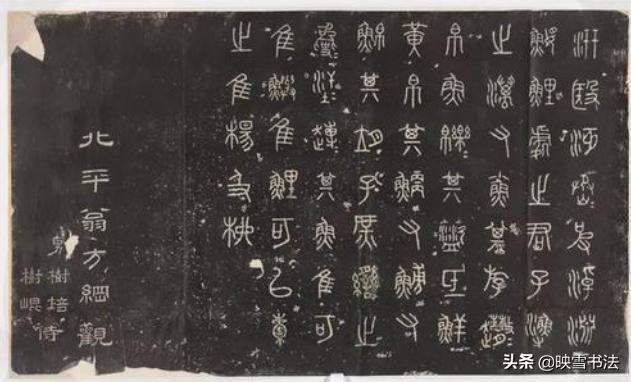 汧殹沔丞皮淖淵
鰋鯉處之君子漁
之澫又小魚其斿趩
帛魚皪其盜氐鮮
黃帛其鯾又鰟又
鮊其孔庶臠之
趨其魚隹可
隹鱮隹鯉可以橐
之隹楊及柳
北平翁方綱觀
男樹培侍
樹崐
头条 @映雪书法